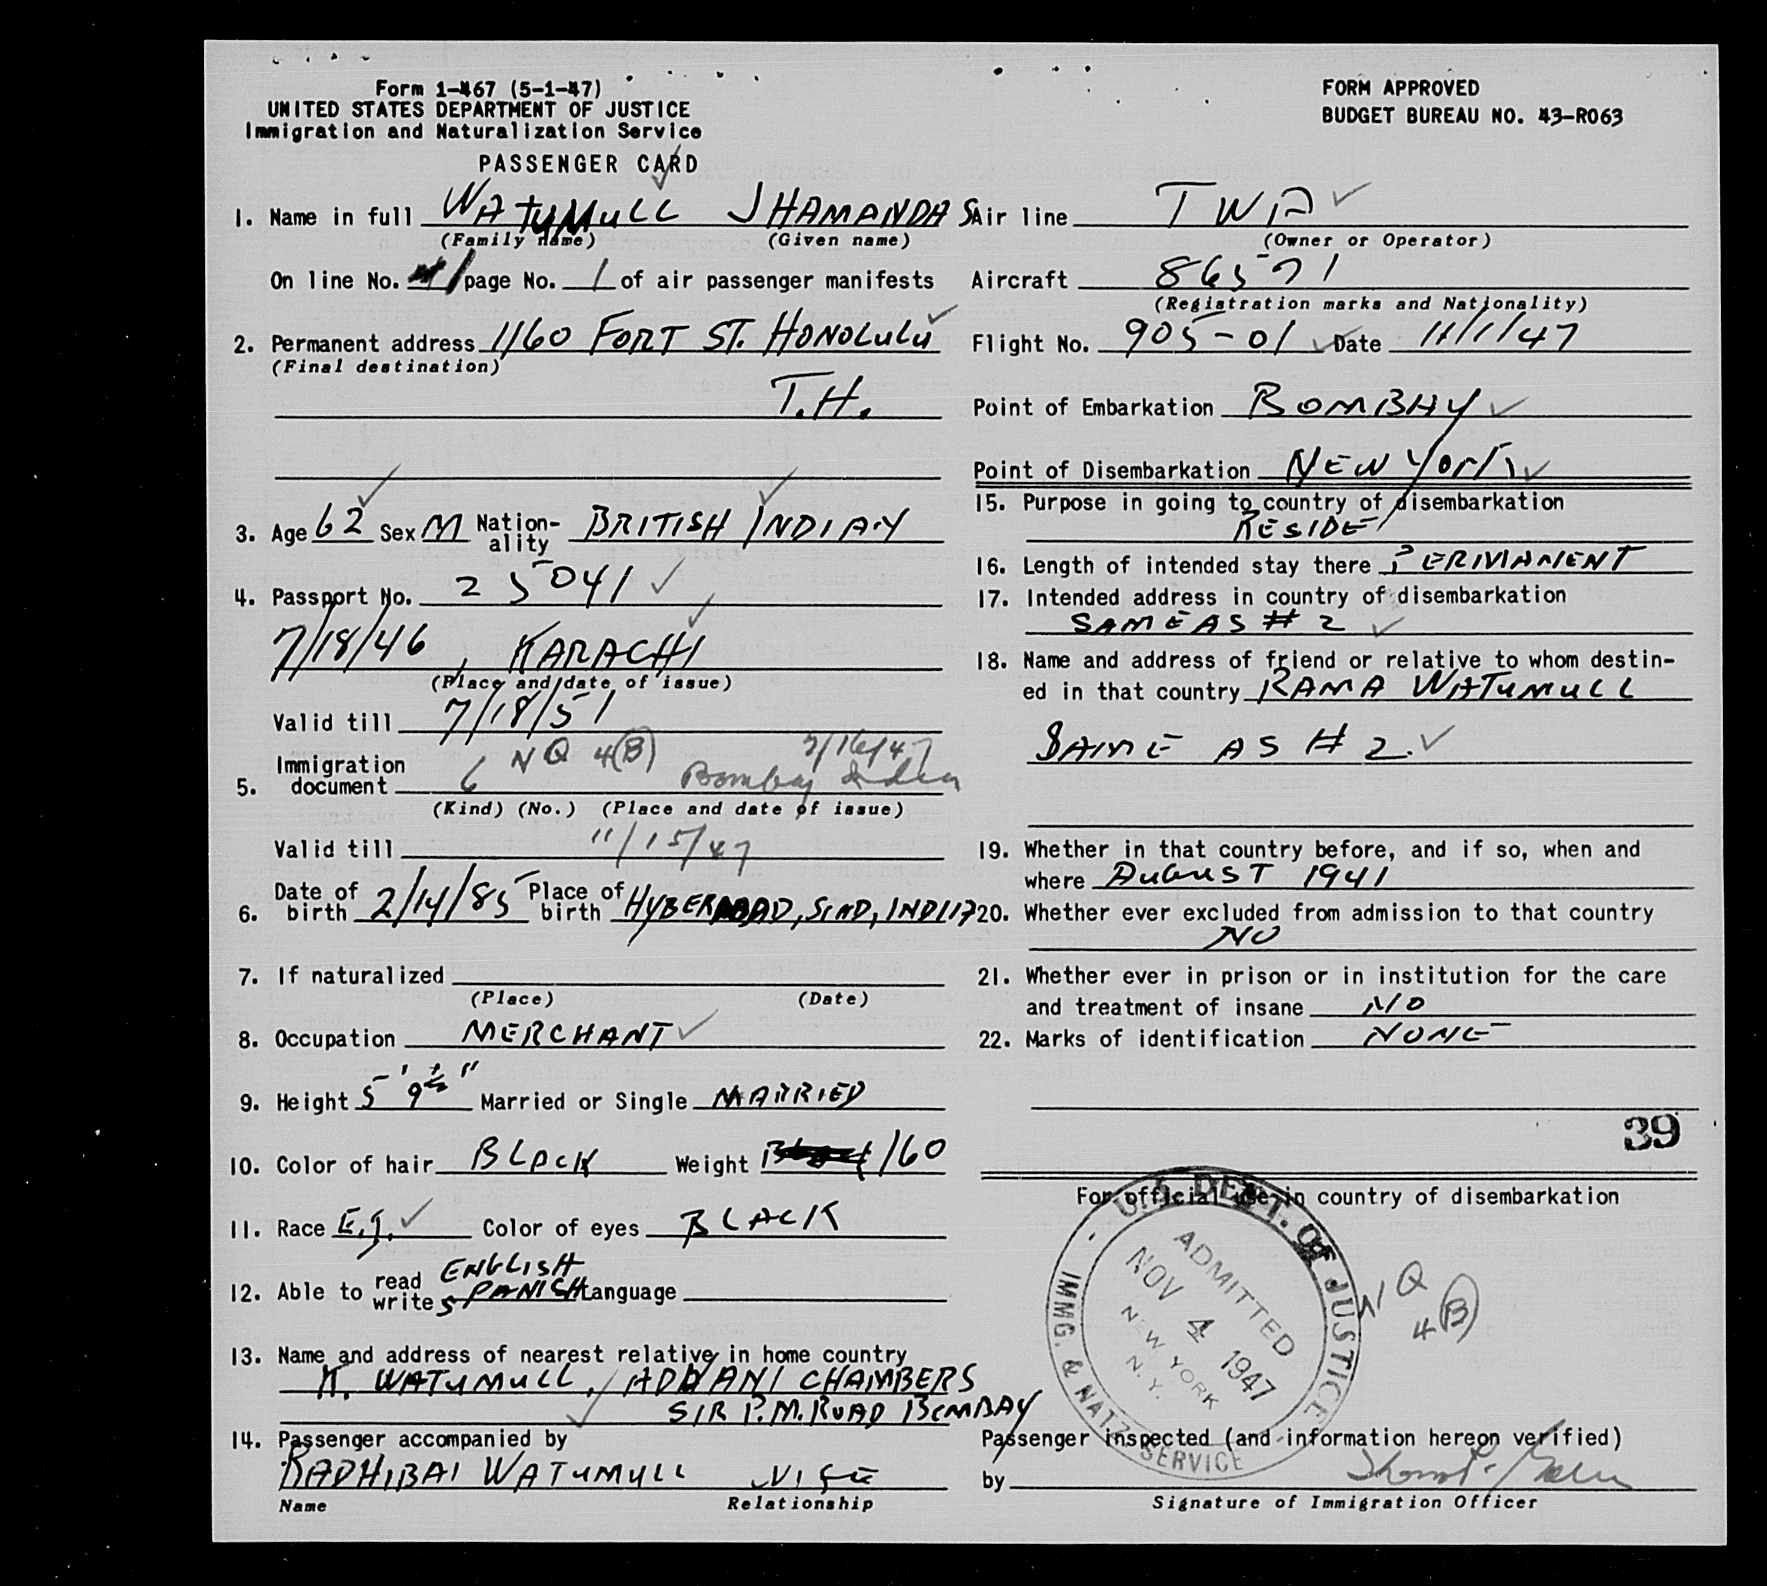 Form 1-467 (5-1-47)
UNITED STATES DEPARTMENT OF JUSTICE
Immigration and Naturalization Service
PASSENGER CARD
FORM APPROVED
BUDGET BUREAU NO. 43-R063
1. Name in full WATUMULL JHAMANDAS
(Family name) (Given name)
On line No. 1 page No. 1 of air passenger manifests
2. Permanent address 1160 FORT ST. HONOLULU
(Final destination)
T.H.
3. Age 62 Sex M Nation-ality BRITISH INDIAN
4. Passport No. 25041
7/18/46, KARACHI
(Place and date of issue)
Valid till 7/18/51
5. Immigration document 6 NQ 4(B) 7/16/47 Bombay India
(Kind) (No.) (Place and date of issue)
Valid till 11/15/47
6. Date of birth 2/14/85 Place of birth HYBERABAD, SIND, INDIA
7. If naturalized
(Place) (Date)
8. Occupation MERCHANT
9. Height 5' 9½" Married or Single MARRIED
10. Color of hair BLACK Weight 160
11. Race E.I. Color of eyes BLACK
12. Able to read ENGLISH
write SPANISH Language
13. Name and address of nearest relative in home country
K. WATUMULL, ADVANI CHAMBERS
SIR P.M. ROAD BOMBAY
14. Passenger accompanied by
RADHIBAI WATUMULL WIFE
Name Relationship
Air line TWA
(Owner or Operator)
Aircraft 86571
(Registration marks and Nationality)
Flight No. 905-01 Date 11/1/47
Point of Embarkation BOMBAY
Point of Disembarkation NEW YORK
15. Purpose in going to country of disembarkation
RESIDE
16. Length of intended stay there PERMANENT
17. Intended address in country of disembarkation
SAME AS # 2
18. Name and address of friend or relative to whom destin-
ed in that country RAMA WATUMULL
SAME AS # 2.
19. Whether in that country before, and if so, when and
where AUGUST 1941
20. Whether ever excluded from admission to that country
NO
21. Whether ever in prison or in institution for the care
and treatment of insane NO
22. Marks of identification NONE
39
For official use in country of disembarkation
U.S. DEPT. OF JUSTICE
IMMG. & NATZ. SERVICE
ADMITTED
NOV 4 1947
NEW YORK
N.Y.
NQ
4(B)
Passenger inspected (and information hereon verified)
by
Signature of Immigration Officer